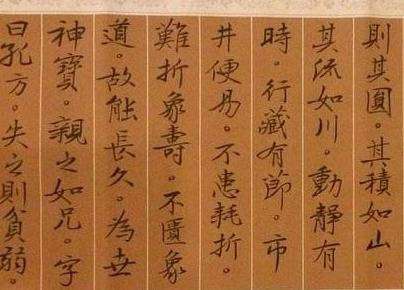 則其圓。其積如山。
其流如川。動靜有
時。行藏有節。市
井便易。不患耗折。
難折象壽。不匱象
道。故能長久。為世
神寶。親之如兄。字
曰孔方。失之則貧弱。